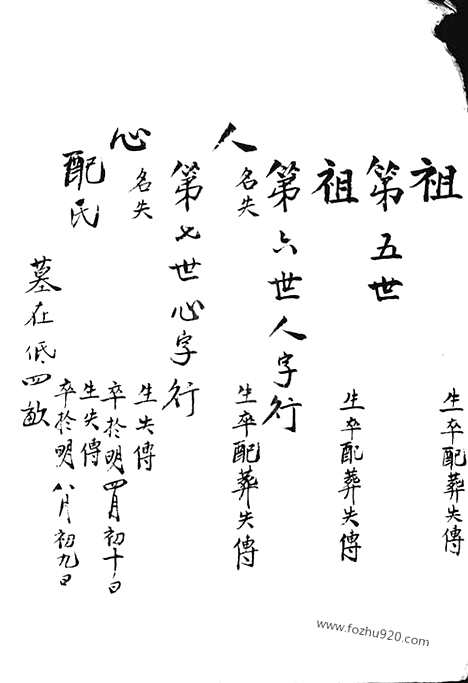 祖 生卒配葬失傳
第五世
祖 生卒配葬失傳
第六世人字行
人 名失 生卒配葬失傳
第七世心字行
心 名失 生失傳
卒於明四月初十日
配氏 生失傳
卒於明八月初九日
墓在低四畝
www.fozhu920.com